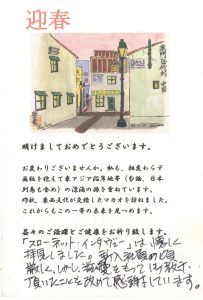 迎春
明けましておめでとうございます。
お変わりございませんか。私も、相変わらず
画板を抱えて東アジア沿岸地帯（勿論、日本
列島も含め）の漂泊の旅を重ねています。
昨秋、東西文化が交錯したマカオを訪ねました。
これからもこの一帯の未来を見つめます。
益々のご活躍とご健康をお祈り致します。
「スローネット・インタヴュー」は、嬉しく
拝見しました。新入社員の頃
厳しく、しかし、愛をもって
頂いたことを改めて感謝しています。